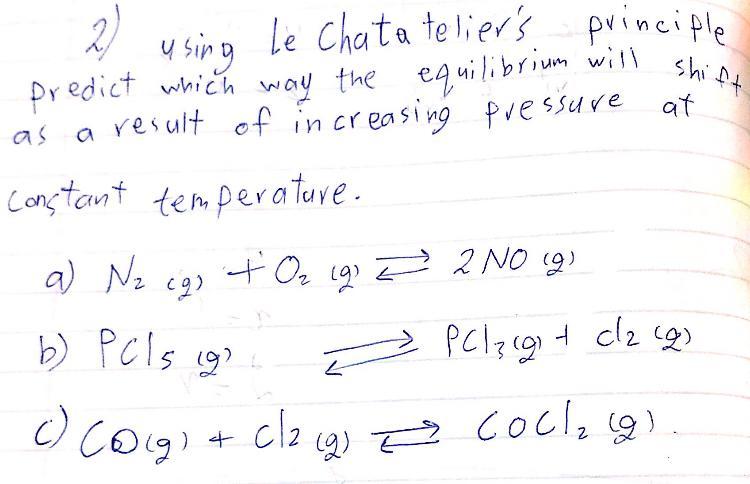 2) using Le Chatatelier's principle
predict which way the equilibrium will shift
as a result of increasing pressure at
constant temperature.
a) N₂ (g) + O₂ (g) ⇌ 2 NO (g)
b) PCl₅ (g) ⇌ PCl₃(g) + Cl₂ (g)
c) CO(g) + Cl₂ (g) ⇌ COCl₂ (g).